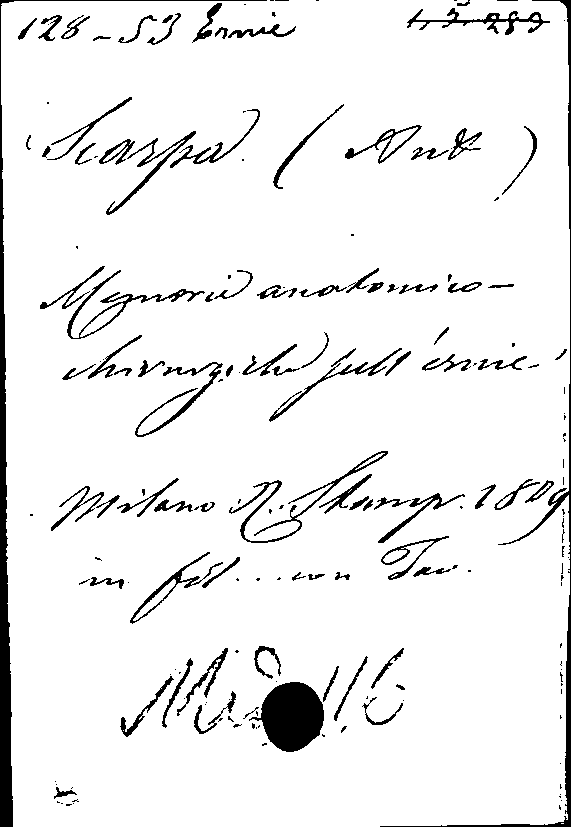 128-53 Ernie 1.3.289
Scarpa (Ant)
Memorie anatomico-
chirurgiche sull'ernie
Milano R. Stamp. 1809
in fol... con Tav.
116